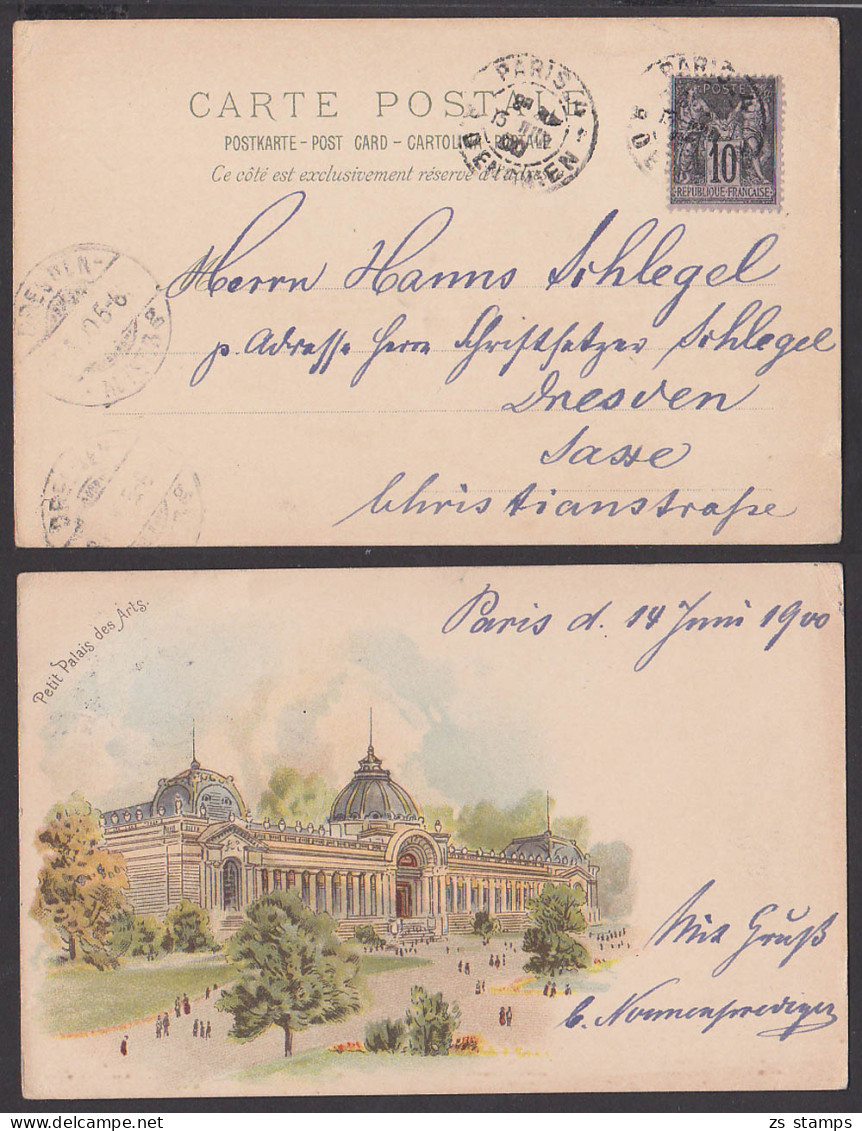 CARTE POSTALE
POSTKARTE - POST CARD - CARTOLINA POSTALE
Ce côté est exclusivement réservé à l'adresse
PARIS
PARIS
POSTE
10
REPUBLIQUE FRANÇAISE
Herrn Hanns Schlegel
p. Adresse Herrn Schriftsetzer Schlegel
Dresden
Saxe
Christianstraße
DRESDEN-
5-6
Petit Palais des Arts.
Paris d. 14 Juni 1900
Mit Gruß
zs stamps